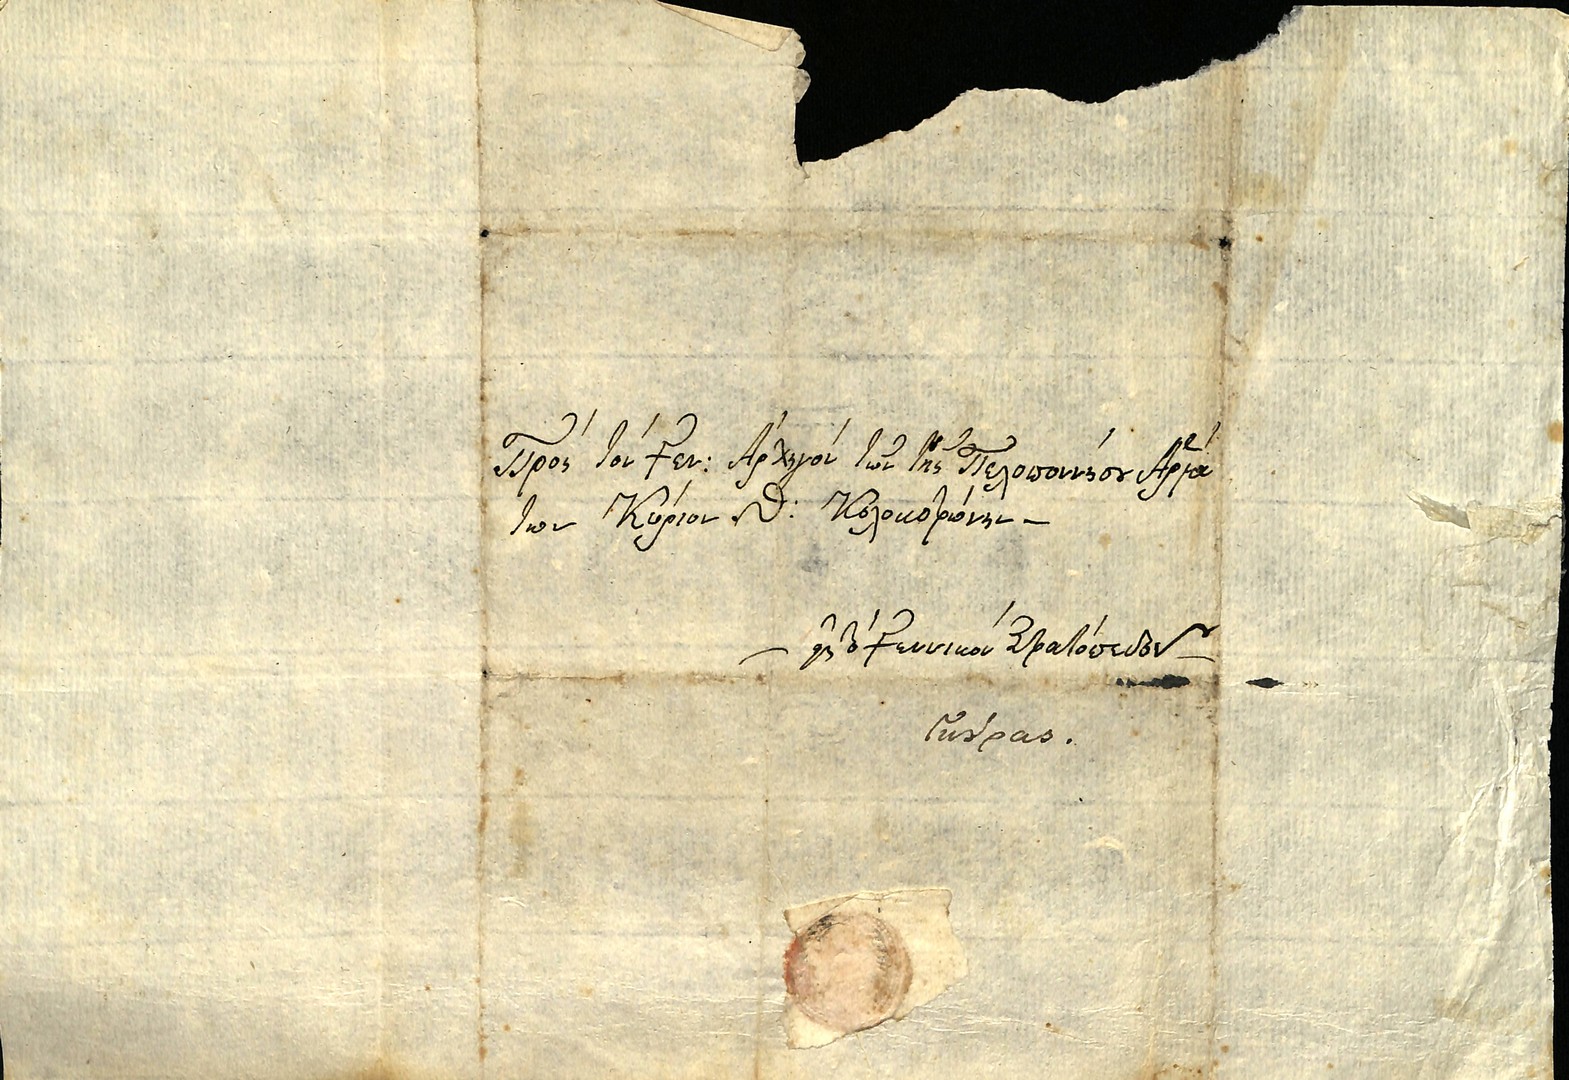 Πρός τόν Γεν: Ἀρχηγόν τῶν τῆς Πελοποννήσου Ἀρμά
των Κύριον Θ: Κολοκοτρώνην –
– εἰς τό Γενικόν Στρατόπεδον –